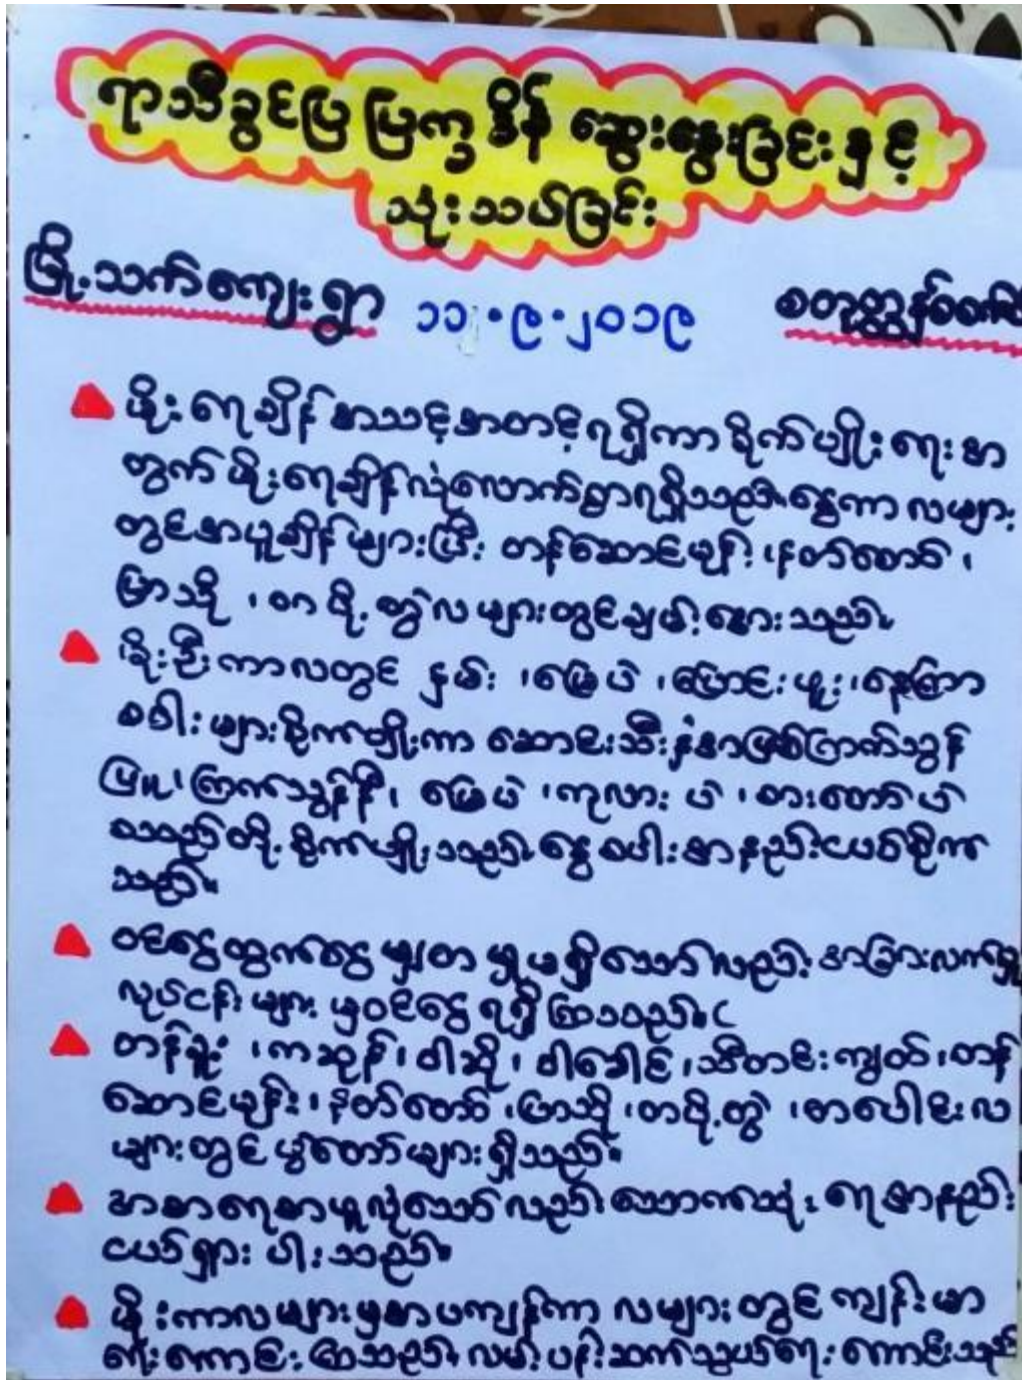 ရာသီခွင်ပြ ပြက္ခဒိန် ဆွေးနွေးခြင်းနှင့်
သုံးသပ်ခြင်း
မြို့သက်ကျေးရွာ ၁၁.၉.၂၀၁၉
မိုးရေချိန် အသင့်အတင့်ရရှိကာ စိုက်ပျိုးရေးအ
တွက် မိုးရေချိန်လုံလောက်စွာရရှိသည်။ နွေကာလများ
တွင်အပူချိန်များပြီး တန်ဆောင်မုန်း၊ နတ်တော်၊
ပြာသို၊ တပို့တွဲလများတွင်ချမ်းအေးသည်။
မိုးဦးကာလတွင် နှမ်း၊ မြေပဲ၊ ပြောင်းဖူး၊ နေကြာ
စပါးများစိုက်ပျိုးကာ ဆောင်းသီးနှံအဖြစ်ကြက်သွန်
ဖြူ၊ ကြက်သွန်နီ၊ မြေပဲ၊ ကုလားပဲ၊ စားတော်ပဲ
စသည်တို့စိုက်ပျိုးသည်။ နွေစပါးအနည်းငယ်စိုက်
သည်။
ဝင်ငွေထွက်ငွေ မျှတမှုမရှိသော်လည်း အခြားလက်မှု
လုပ်ငန်းများမှဝင်ငွေရရှိကြသည်။
တန်ခူး၊ ကဆုန်၊ ဝါဆို၊ ဝါခေါင်၊ သီတင်းကျွတ်၊ တန်
ဆောင်မုန်း၊ နတ်တော်၊ ပြာသို၊ တပို့တွဲ၊ တပေါင်းလ
များတွင်ပွဲတော်များရှိသည်။
အစာရေစာဖူလုံသော်လည်း သောက်သုံးရေအနည်း
ငယ်ရှားပါးသည်။
မိုးကာလများမှအပကျန်ကာလများတွင်ကျန်းမာ
ရေးကောင်းကြသည်။ လမ်းပန်းဆက်သွယ်ရေးကောင်းသည်